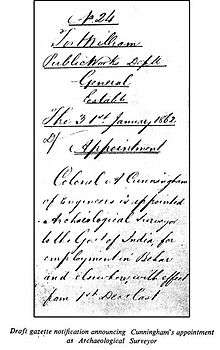 No 24
Fort William
Public Works Deptt
General
Establt
The 31st January 1862.
Appointment
Colonel A Cunningham
of Engineers is appointed
Archaeological Surveyor
to the Govt of India, for
employment in Behar
and elsewhere, with effect
from 1st Decr last
Draft gazette notification announcing Cunningham's appointment
as Archaeological Surveyor